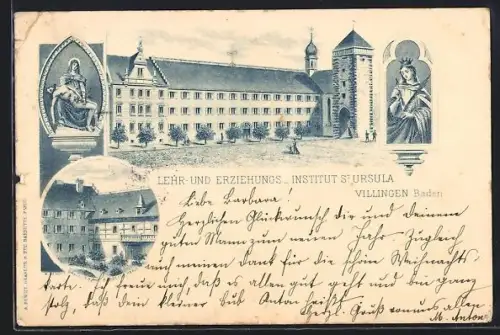 LEHR- UND ERZIEHUNGS-INSTITUT ST URSULA
VILLINGEN Baden
Liebe Barbara!
Herzlichen Glückwunsch dir und deinem
guten Mann zum neuen Jahr. Zugleich
auch meinen Dank für die schöne Weihnachts
karte. Ich freue mich, daß es allen gut geht und bin ganz
stolz, daß dein kleiner Bub Anton heißt
Herzl. Gruß an uns allen
M. Anton